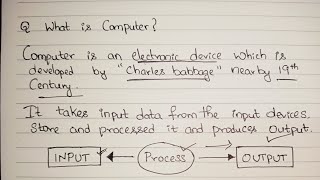 Q What is Computer?
Computer is an electronic device which is
developed by "Charles babbage" nearby 19th
Century.
It takes input data from the input devices.
Store and processed it and produces Output.
INPUT Process OUTPUT